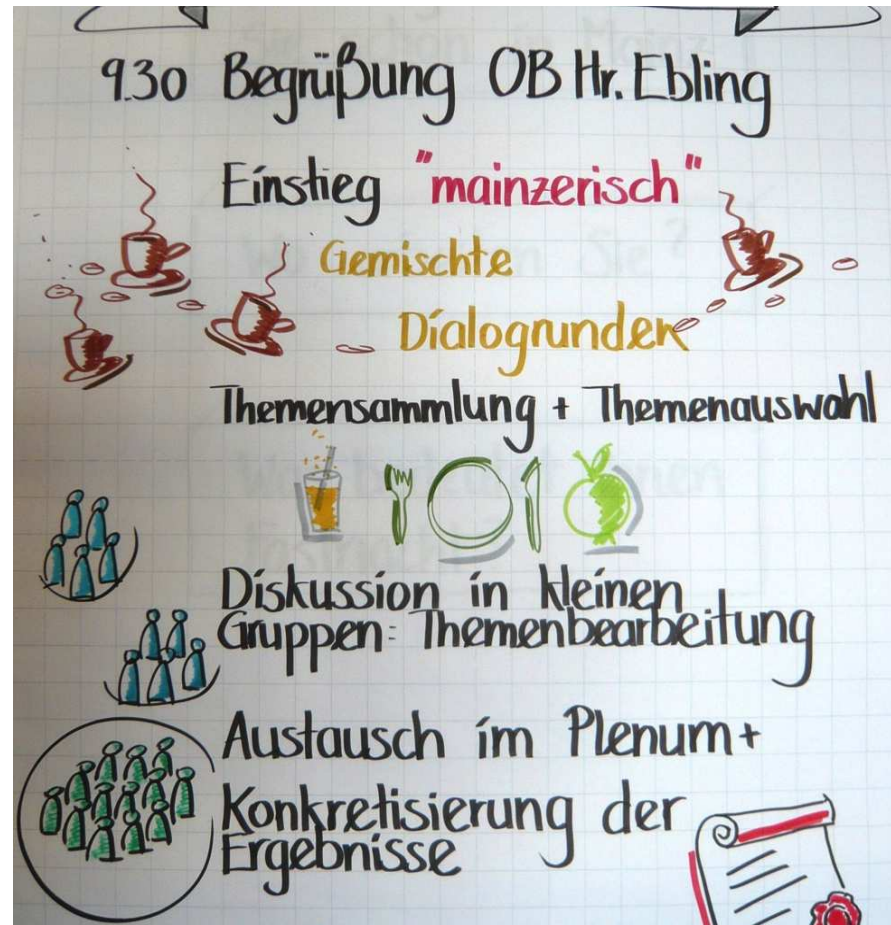 9.30 Begrüßung OB Hr. Ebling
Einstieg "mainzerisch"
Gemischte
Dialogrunden
Themensammlung + Themenauswahl
Diskussion in kleinen
Gruppen: Themenbearbeitung
Austausch im Plenum +
Konkretisierung der
Ergebnisse